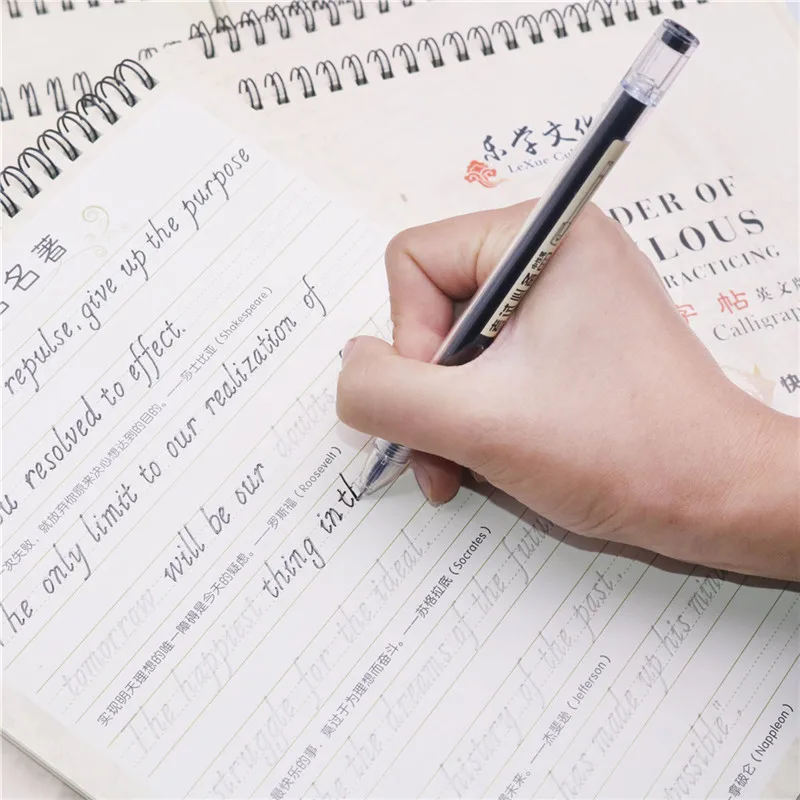 名著
repulse, give up the purpose
resolved to effect.
次失败，就放弃你原来决心想达到的目的。——莎士比亚（Shakespeare）
he only limit to our realization of
tomorrow will be our doubts
实现明天理想的唯一障碍是今天的疑虑。——罗斯福（Roosevell）
the happiest thing in th
struggle for the ideal.
最快乐的事，莫过于为理想而奋斗。——苏格拉底（Socrates）
the dreams of the futu
history of the past.
未来。——杰斐逊（Jefferson）
has made up his min
possible".
拿破仑（Nappleon）
乐学文化
LeXue Cu
DER OF
LOUS
RACTICING
字帖 英文版
Calligrap
快
考试必备